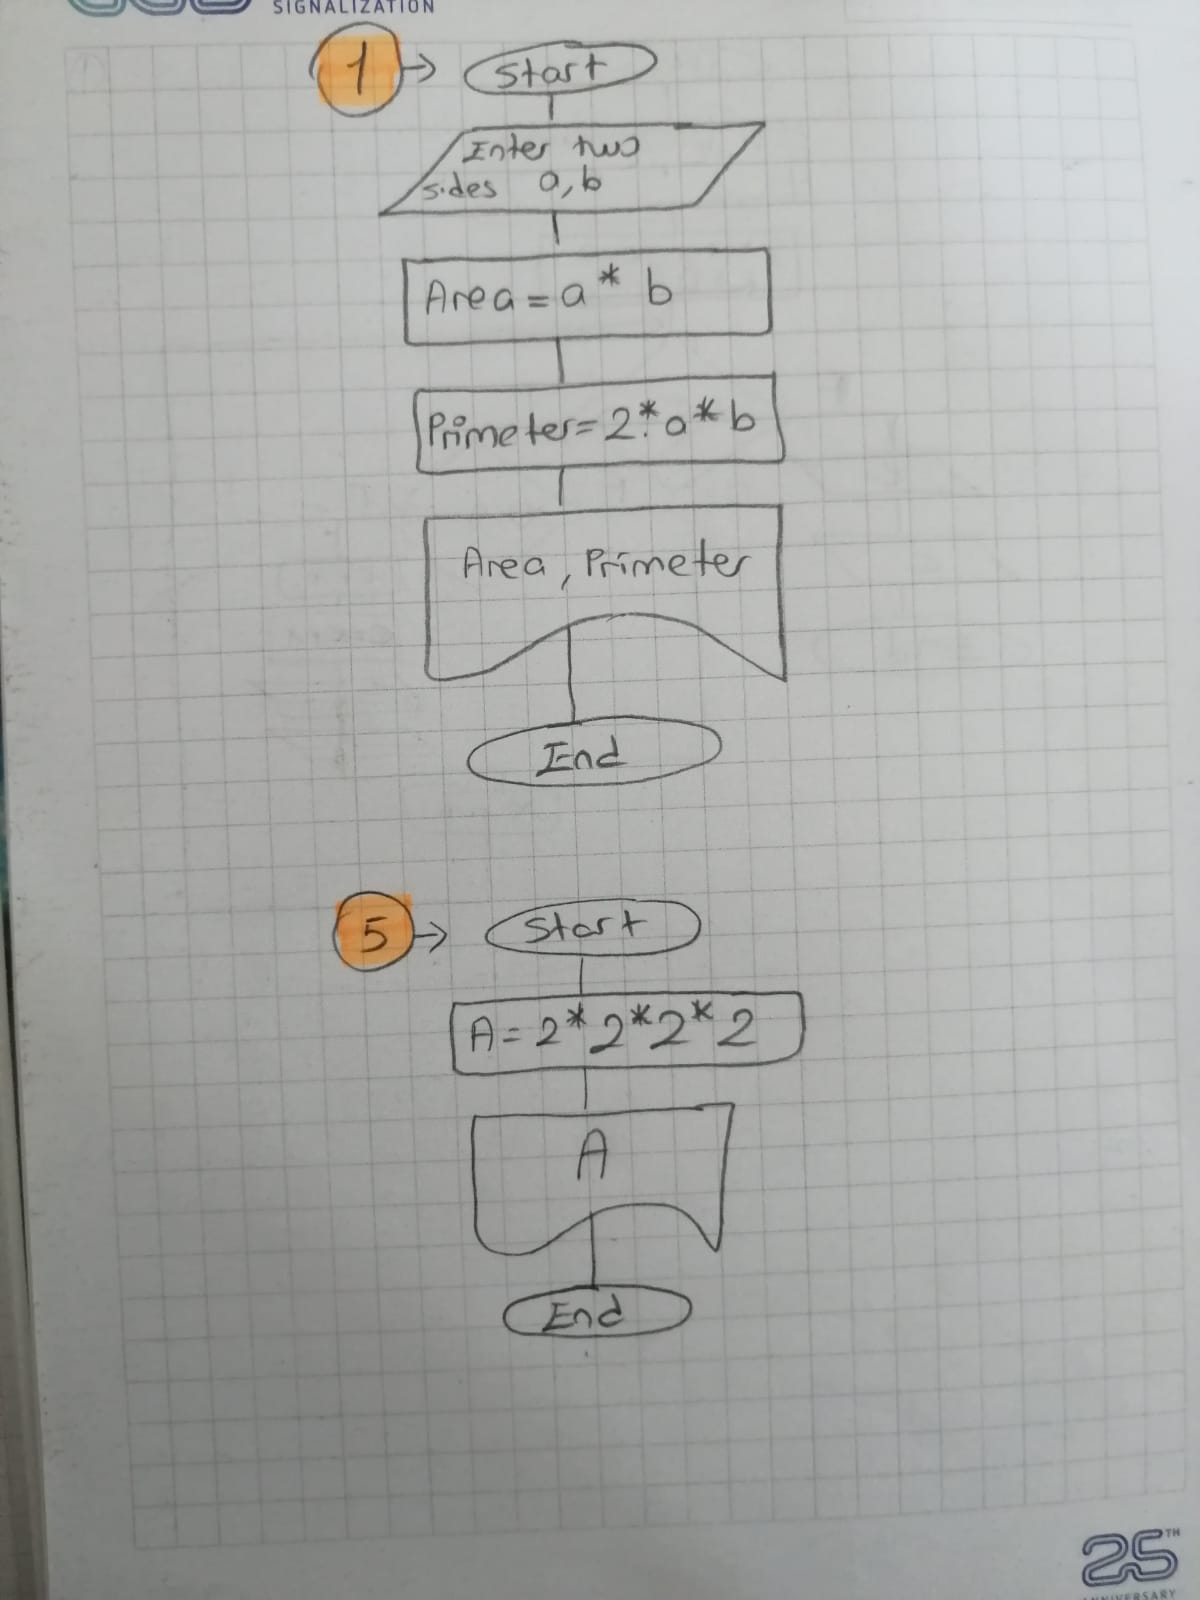 SIGNALIZATION
1 → Start
Enter two
sides a, b
Area = a * b
Primeter = 2 * a * b
Area, Primeter
End
5 → Start
A = 2 * 2 * 2 * 2
A
End
25TH
ANNIVERSARY